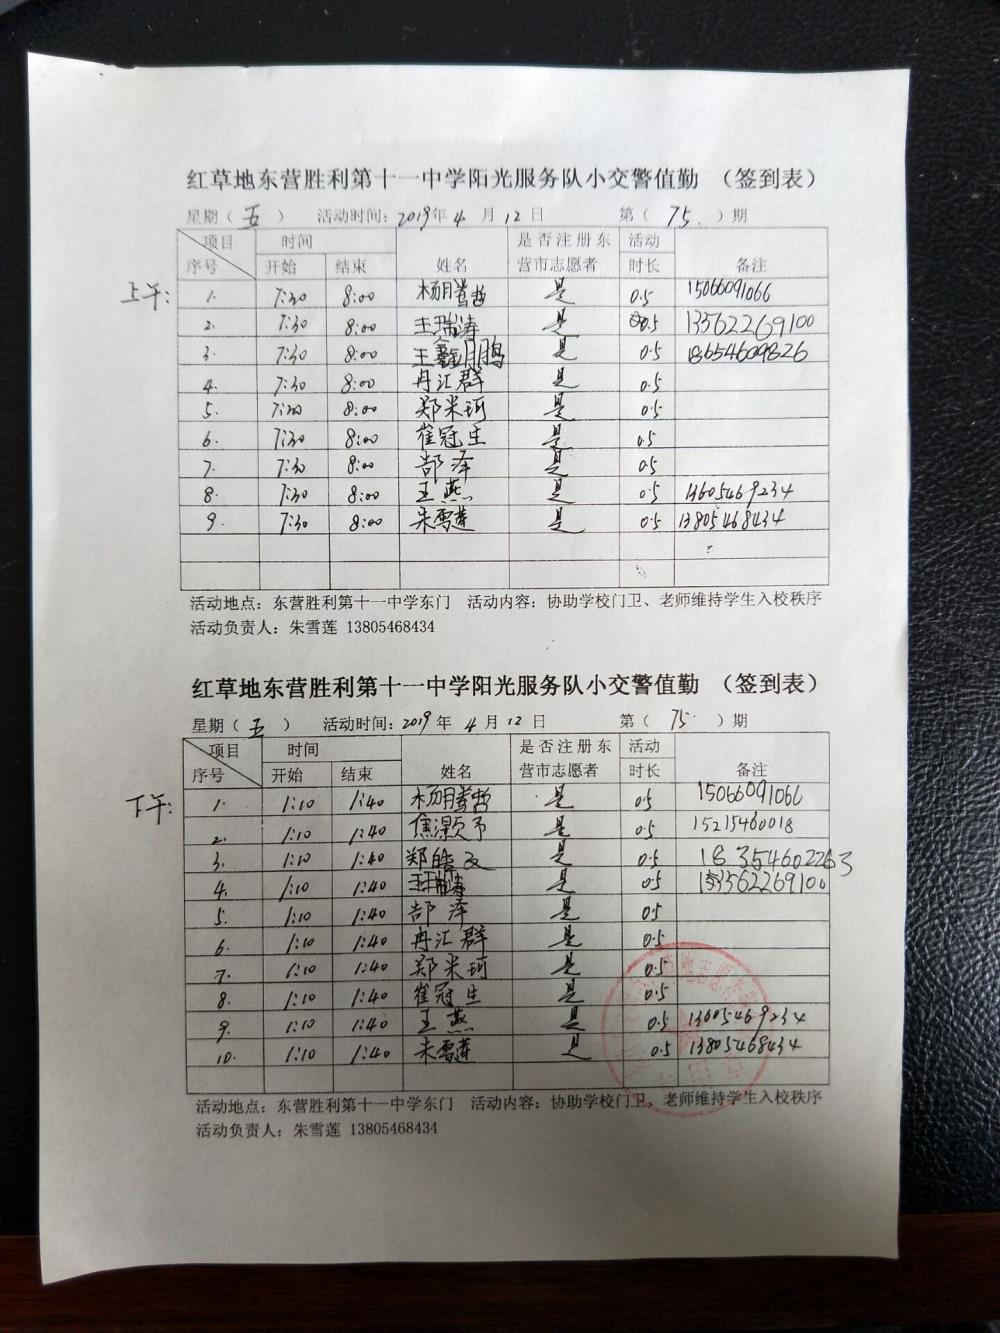 红草地东营胜利第十一中学阳光服务队小交警值勤 （签到表）
星期（ 五 ） 活动时间：2019年 4 月 12 日 第（ 75. ）期
项目 时间 是否注册东 活动
序号 开始 结束 姓名 营市志愿者 时长 备注
上午：
1. 7:30 8:00 杨腾哲 是 0.5 15066091066
2. 7:30 8:00 王瑞涛 是 0.5 13562269100
3. 7:30 8:00 王鑫鹏 是 0.5 18654609826
4. 7:30 8:00 冉汇群 是 0.5
5. 7:30 8:00 郑米珂 是 0.5
6. 7:30 8:00 崔冠生 是 0.5
7. 7:30 8:00 郜泽 是 0.5
8. 7:30 8:00 王燕 是 0.5 13605469234
9. 7:30 8:00 朱雪莲 是 0.5 13805468434
活动地点：东营胜利第十一中学东门 活动内容：协助学校门卫、老师维持学生入校秩序
活动负责人：朱雪莲 13805468434
红草地东营胜利第十一中学阳光服务队小交警值勤 （签到表）
星期（ 五 ） 活动时间：2019 年 4 月 12 日 第（ 75 ）期
项目 时间 是否注册东 活动
序号 开始 结束 姓名 营市志愿者 时长 备注
下午：
1. 1:10 1:40 杨腾哲 是 0.5 15066091066
2. 1:10 1:40 焦灏予 是 0.5 15215460018
3. 1:10 1:40 郑皓 是 0.5 18354602263
4. 1:10 1:40 王瑞涛 是 0.5 13562269100
5. 1:10 1:40 郜泽 是 0.5
6. 1:10 1:40 冉汇群 是 0.5
7. 1:10 1:40 郑米珂 是 0.5
8. 1:10 1:40 崔冠生 是 0.5
9. 1:10 1:40 王燕 是 0.5 13605469234
10. 1:10 1:40 朱雪莲 是 0.5 13805468434
活动地点：东营胜利第十一中学东门 活动内容：协助学校门卫、老师维持学生入校秩序
活动负责人：朱雪莲 13805468434